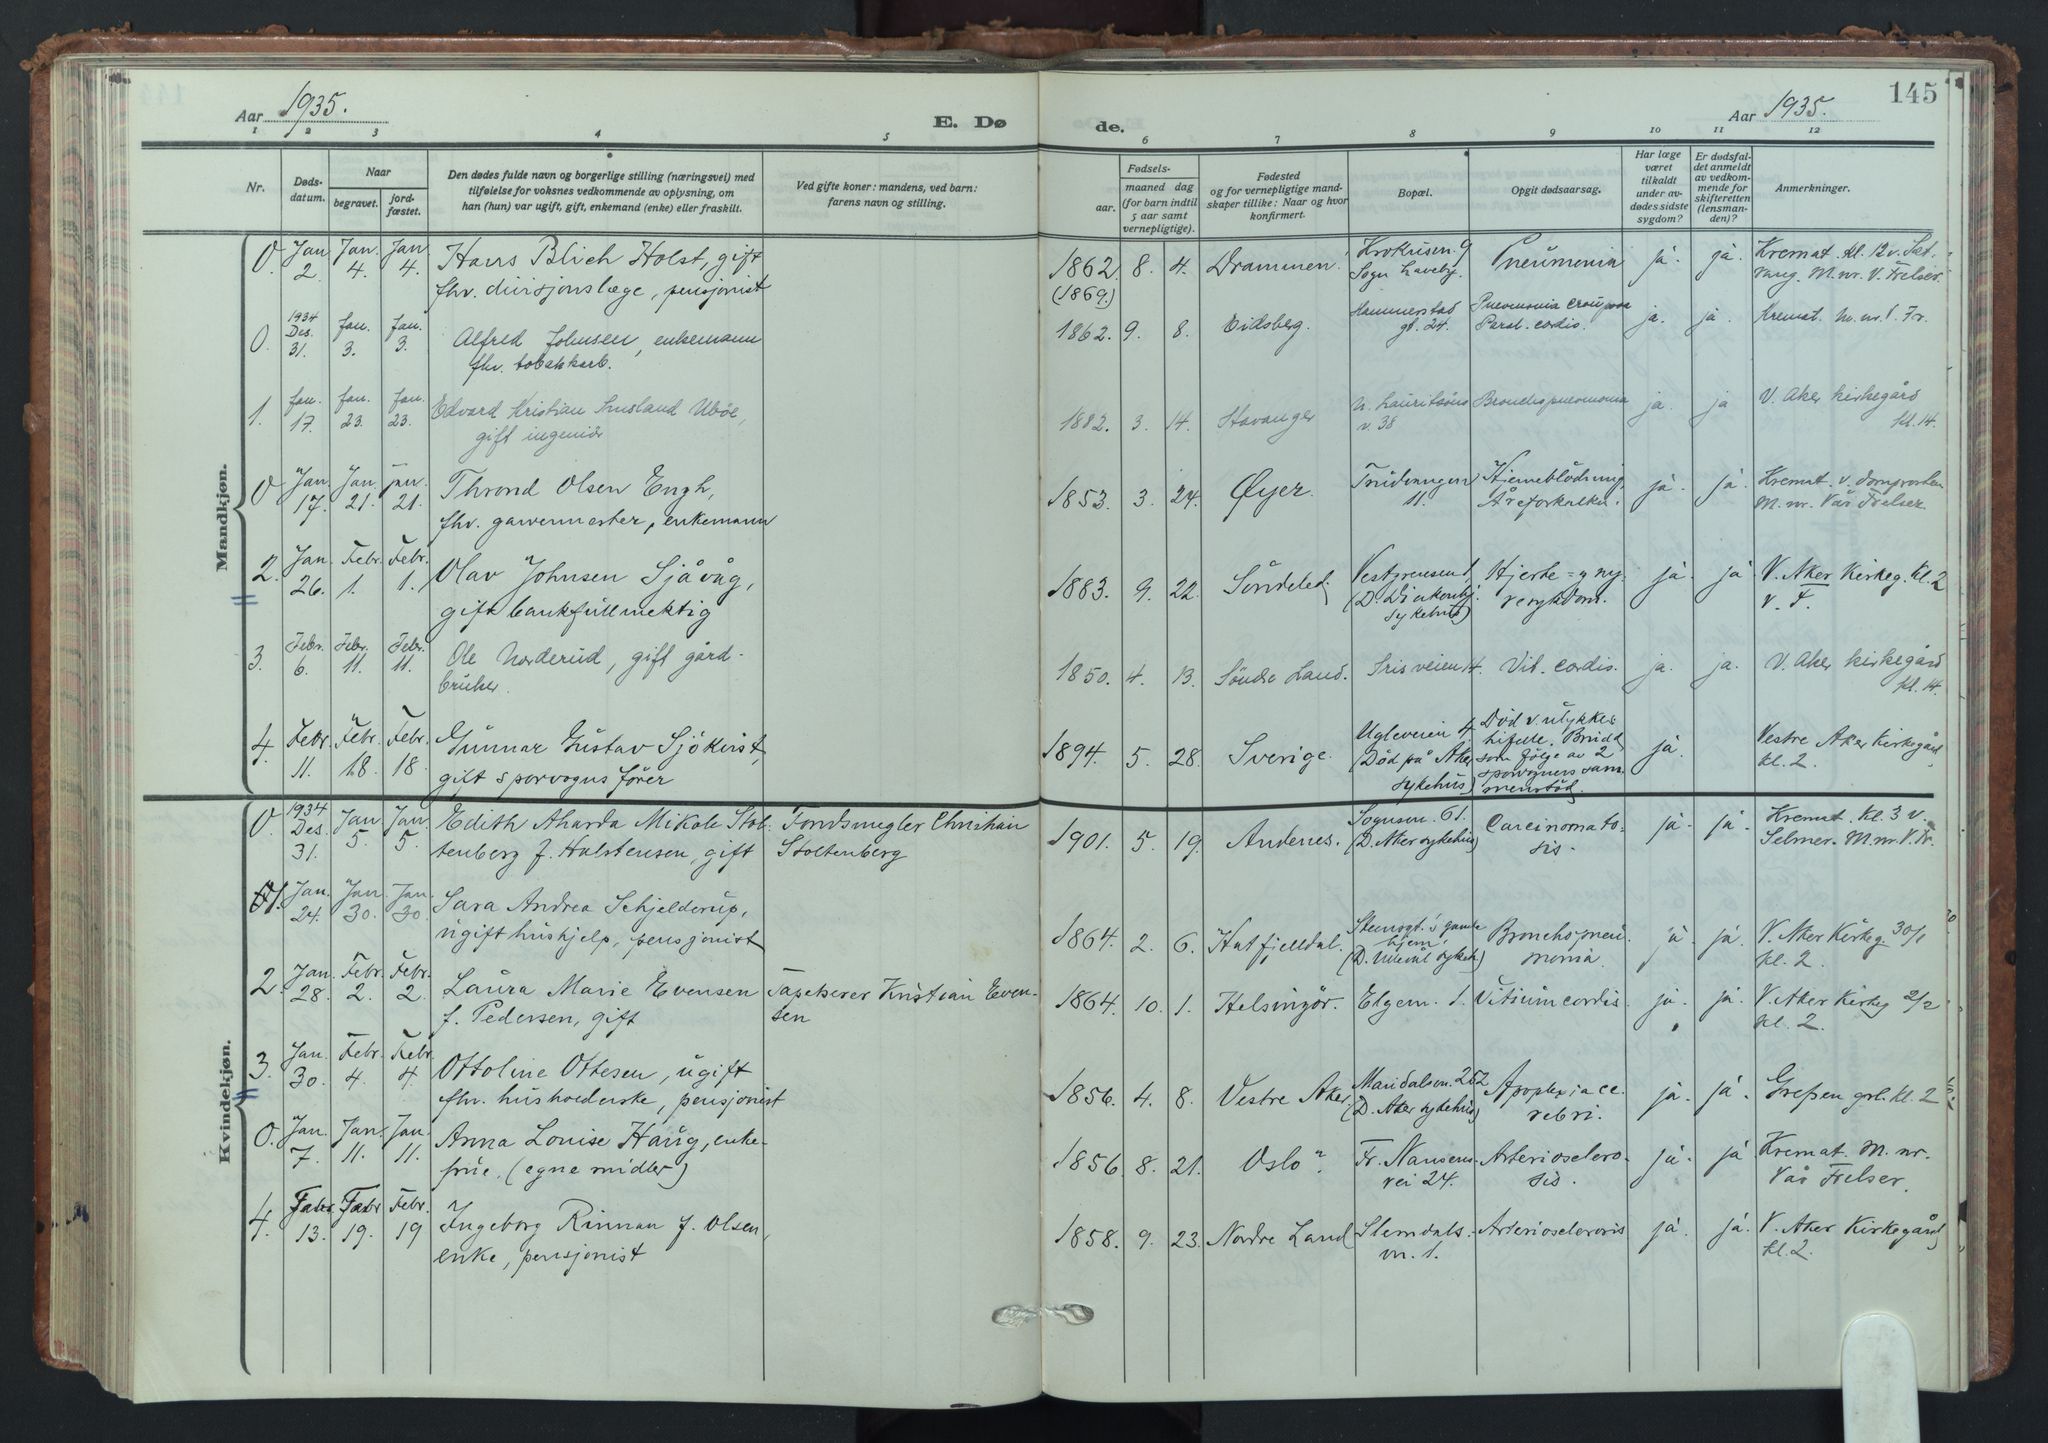 Aar 1935.
E. Dø
de.
Aar 1935.
145
1 2 3 4 5
6 7 8 9 10 11 12
Nr.
Døds-
datum.
Naar
begravet.
jord-
fæstet.
Den dødes fulde navn og borgerlige stilling (næringsvei) med
tilføielse for voksnes vedkommende av oplysning, om
han (hun) var ugift, gift, enkemand (enke) eller fraskilt.
Ved gifte koner: mandens, ved barn:
farens navn og stilling.
Fødsels-
aar.
maaned dag
(for barn indtil
5 aar samt
vernepligtige).
Fødested
og for vernepligtige mand-
skaper tillike: Naar og hvor
konfirmert.
Bopæl.
Opgit dødsaarsag.
Har læge
været
tilkaldt
under av-
dødes sidste
sygdom?
Er dødsfal-
det anmeldt
av vedkom-
mende for
skifteretten
(lensman-
den)?
Anmerkninger.
Mandkjøn.
0. Jan 2. Jan. 4. Jan 4. Hans Blich Holst, gift
fhv. divisjonslæge, pensjonist
1862. (1869.) 8. 4. Drammen.
Krokusv. 9
Sogn haveby.
Pneumonia
ja. ja.
Kremat. kl. 12 v.
M. nr. V. Frelser.
0. 1934 Des. 31. Jan. 3. Jan. 3. Alfred Johnsen, enkemann
fhv. tobakkarb.
1862. 9. 8. Eidsberg.
Hammerstad
gt. 24.
Pneumonia crouposa
Paral. cordis.
ja. ja.
Kremat. m. nr. V. Fr.
1. Jan. 17. Jan. 23. Jan. 23. Edvard Kristian Ubøe,
gift ingeniør
1882. 3. 14. Stavanger
N. Lauritsøns
v. 38
Bronchopneumonia
ja. ja
V. Aker kirkegård
kl. 14.
0 Jan. 17. Jan. 21. Jan. 21. Thrond Olsen Engh,
fhv. garvermester, enkemann
1853. 3. 24. Øyer.
11.
Hjerneblødning,
Åreforkalkn.
ja. ja.
Kremat. v. domprosten
M. nr. Vår Frelser.
2. Jan. 26. Febr. 1. Febr. 1. Olav Johnsen Sjåvåg,
gift bankfullmektig
1883. 9. 22. Søndeled
Vestgrensen 1,
(D. Diakonhj.
sykehus)
Hjerte- og ny-
resykdom.
ja. ja
V. Aker Kirkeg. kl. 2
v. F.
3. Febr. 6. Febr. 11. Febr. 11. Ole Norderud, gift gård-
bruker.
1850. 4. 13. Søndre Land.
Irisveien 14.
Vit. cordis.
ja. ja.
V. Aker kirkegård
kl. 14.
4. Febr. 11. Febr. 18. Febr. 18. Gunnar Gustav Sjökvist,
gift sporvognsfører
1894. 5. 28. Sverige.
Ugleveien 4.
(Død på Aker
sykehus)
Død v. ulykkes-
tilfelle. Brudd
som følge av 2
sporvogners sam-
menstød.
ja.
Vestre Aker Kirkegård
kl. 2.
Kvindekjøn.
0. 1934 Des. 31. Jan 5. Jan. 5. Edith Aharda Mikole Stol-
tenberg f. Halstensen, gift
Fondsmegler Christian
Stoltenberg
1901. 5. 19. Andenes.
Sognsv. 61.
(D. Aker sykehus)
Carcinomato-
sis.
ja. ja.
Kremat. kl. 3 v.
Selmer. M. nr. V. Fr.
1. Jan. 24. Jan 30. Jan 30. Sara Andrea Schjelderup,
ugift hushjelp, pensjonist
1864. 2. 6. Hatfjelldal.
Stensgt.s gamle
hjem,
(D. Ullevål sykeh.)
Bronchopneu-
monia.
ja ja.
V. Aker Kirkeg. 30/1
kl. 2.
2. Jan. 28. Febr. 2. Febr. 2 Laura Marie Evensen
f. Pedersen, gift
Tapetserer Kristian Even-
sen
1864. 10. 1. Helsingør.
Elgem. 1.
Vitium cordis
ja. ja.
V. Aker Kirkeg 2/2
kl. 2.
3. Jan. 30. Febr. 4. Febr. 4 Ottoline Ottesen, ugift
fhv. husholderske, pensjonist
1856. 4. 8. Vestre Aker.
Maridalsv. 252
(D. Aker sykehus)
Apoplexia ce-
rebri.
ja. ja.
Grefsen grl. kl. 2
0. Jan. 7. Jan. 11. Jan. 11. Anna Louise Haug, enke-
frue. (egne midler)
1856. 8. 21. Oslo?
Fr. Nansens
vei 24.
Arteriosclero-
sis.
ja. ja
Kremat. M. nr.
Vår Frelser.
4. Febr. 13. Febr 19. Febr. 19 Ingeborg Rinnan f. Olsen,
enke, pensjonist
1858. 9. 23. Nordre Land
Slemdals-
vn. 1.
Arteriosclerosis
ja. ja.
V. Aker Kirkegård
kl. 2.